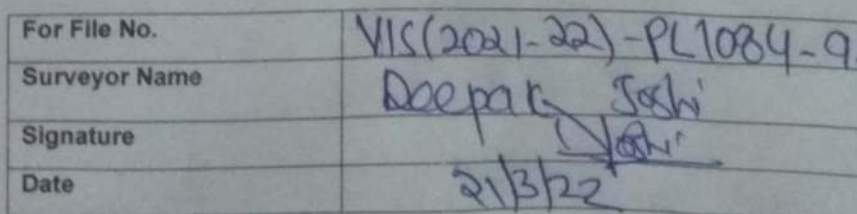 For File No. VIS(2021-22)-PL1084-9
Surveyor Name Deepak Joshi
Signature Joshi
Date 21/3/22